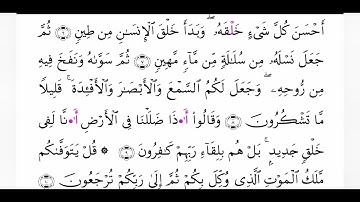 أَحْسَنَ كُلَّ شَىْءٍ خَلَقَهُۥ ۖ وَبَدَأَ خَلْقَ ٱلْإِنسَٰنِ مِن طِينٍ ۝ ثُمَّ
جَعَلَ نَسْلَهُۥ مِن سُلَٰلَةٍ مِّن مَّآءٍ مَّهِينٍ ۝ ثُمَّ سَوَّىٰهُ وَنَفَخَ فِيهِ
مِن رُّوحِهِۦ ۖ وَجَعَلَ لَكُمُ ٱلسَّمْعَ وَٱلْأَبْصَٰرَ وَٱلْأَفْـِٔدَةَ ۚ قَلِيلًا
مَّا تَشْكُرُونَ ۝ وَقَالُوٓا۟ أَ.ذَا ضَلَلْنَا فِى ٱلْأَرْضِ أَ.نَّا لَفِى
خَلْقٍ جَدِيدٍۭ ۚ بَلْ هُم بِلِقَآءِ رَبِّهِمْ كَٰفِرُونَ ۝ ۞ قُلْ يَتَوَفَّىٰكُم
مَّلَكُ ٱلْمَوْتِ ٱلَّذِى وُكِّلَ بِكُمْ ثُمَّ إِلَىٰ رَبِّكُمْ تُرْجَعُونَ ۝